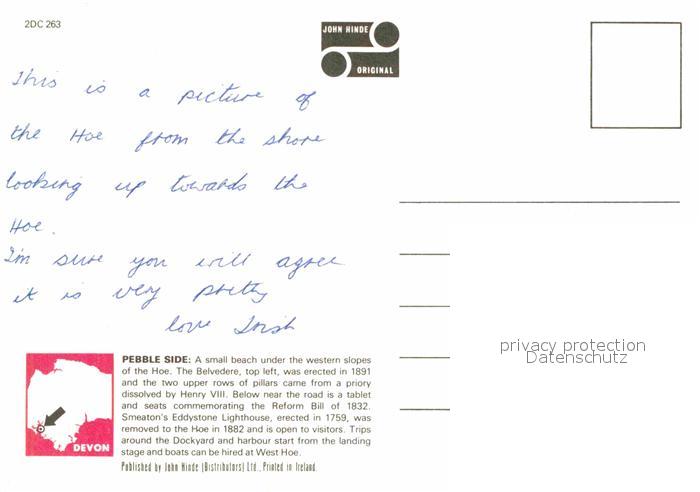 2DC 263
JOHN HINDE
ORIGINAL
This is a picture of
the Hoe from the shore
looking up towards the
Hoe.
I'm sure you will agree
it is very pretty
love Trish
PEBBLE SIDE: A small beach under the western slopes
of the Hoe. The Belvedere, top left, was erected in 1891
and the two upper rows of pillars came from a priory
dissolved by Henry VIII. Below near the road is a tablet
and seats commemorating the Reform Bill of 1832.
Smeaton's Eddystone Lighthouse, erected in 1759, was
removed to the Hoe in 1882 and is open to visitors. Trips
around the Dockyard and harbour start from the landing
stage and boats can be hired at West Hoe.
DEVON
Published by John Hinde (Distributors) Ltd., Printed in Ireland.
privacy protection
Datenschutz